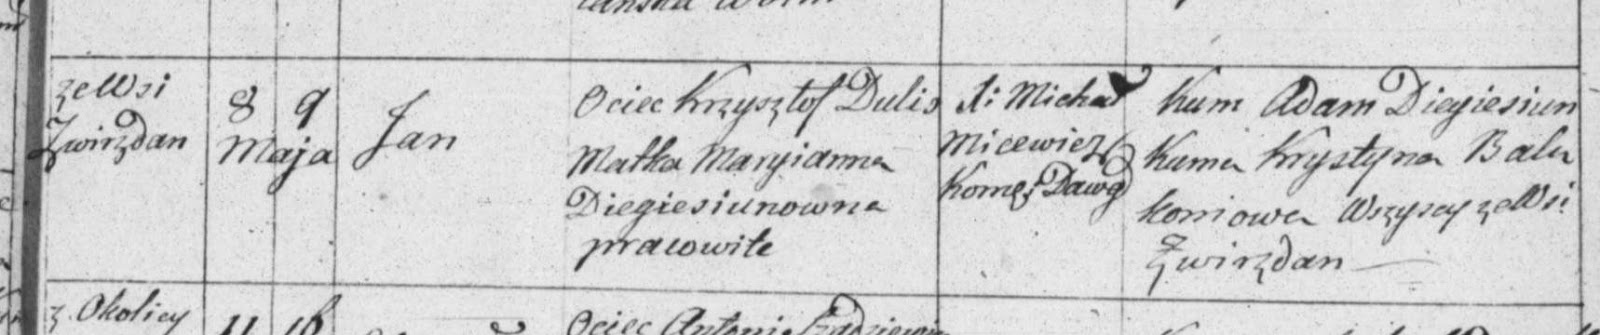 ze Wsi
Zwirzdan
8 9
Maja
Jan
Ociec Krzysztof Dulis
Matka Maryianna
Diegiesiunowna
pracowite
Michał
Micewicz
Kum Adam Diegiesiun
Kuma Krystyna Balu
koniowa Wszyscy ze Wsi
Zwirzdan
z Okolicy
11
Ociec Antoni